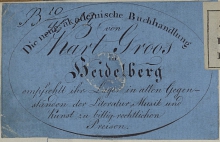 Die neue akademische Buchhandlung
von
Karl Groos
in
Heidelberg
empfiehlt ihr Lager in allen Gegen-
ständen der Literatur, Musik und
Kunst zu billig-rechtlichen
Preisen.